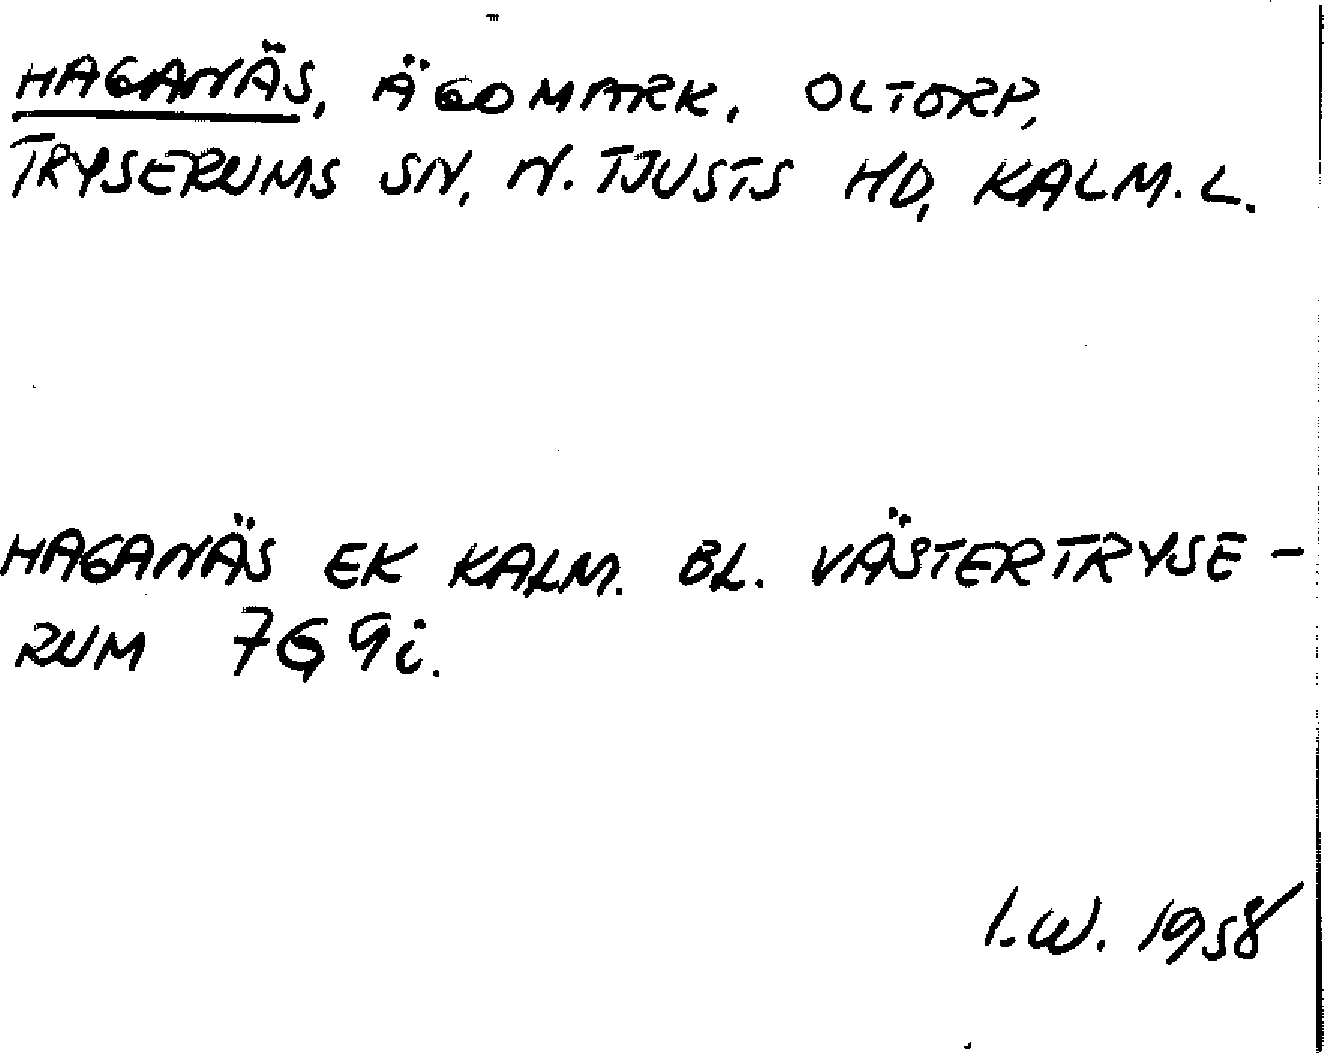 HAGANÄS, ÄGOMARK, OLTORP,
TRYSERUMS SN, N. TJUSTS HD, KALM. L.
HAGANÄS EK KALM. BL. VÄSTERTRYSE-
RUM 7G 9i.
I.W. 1958